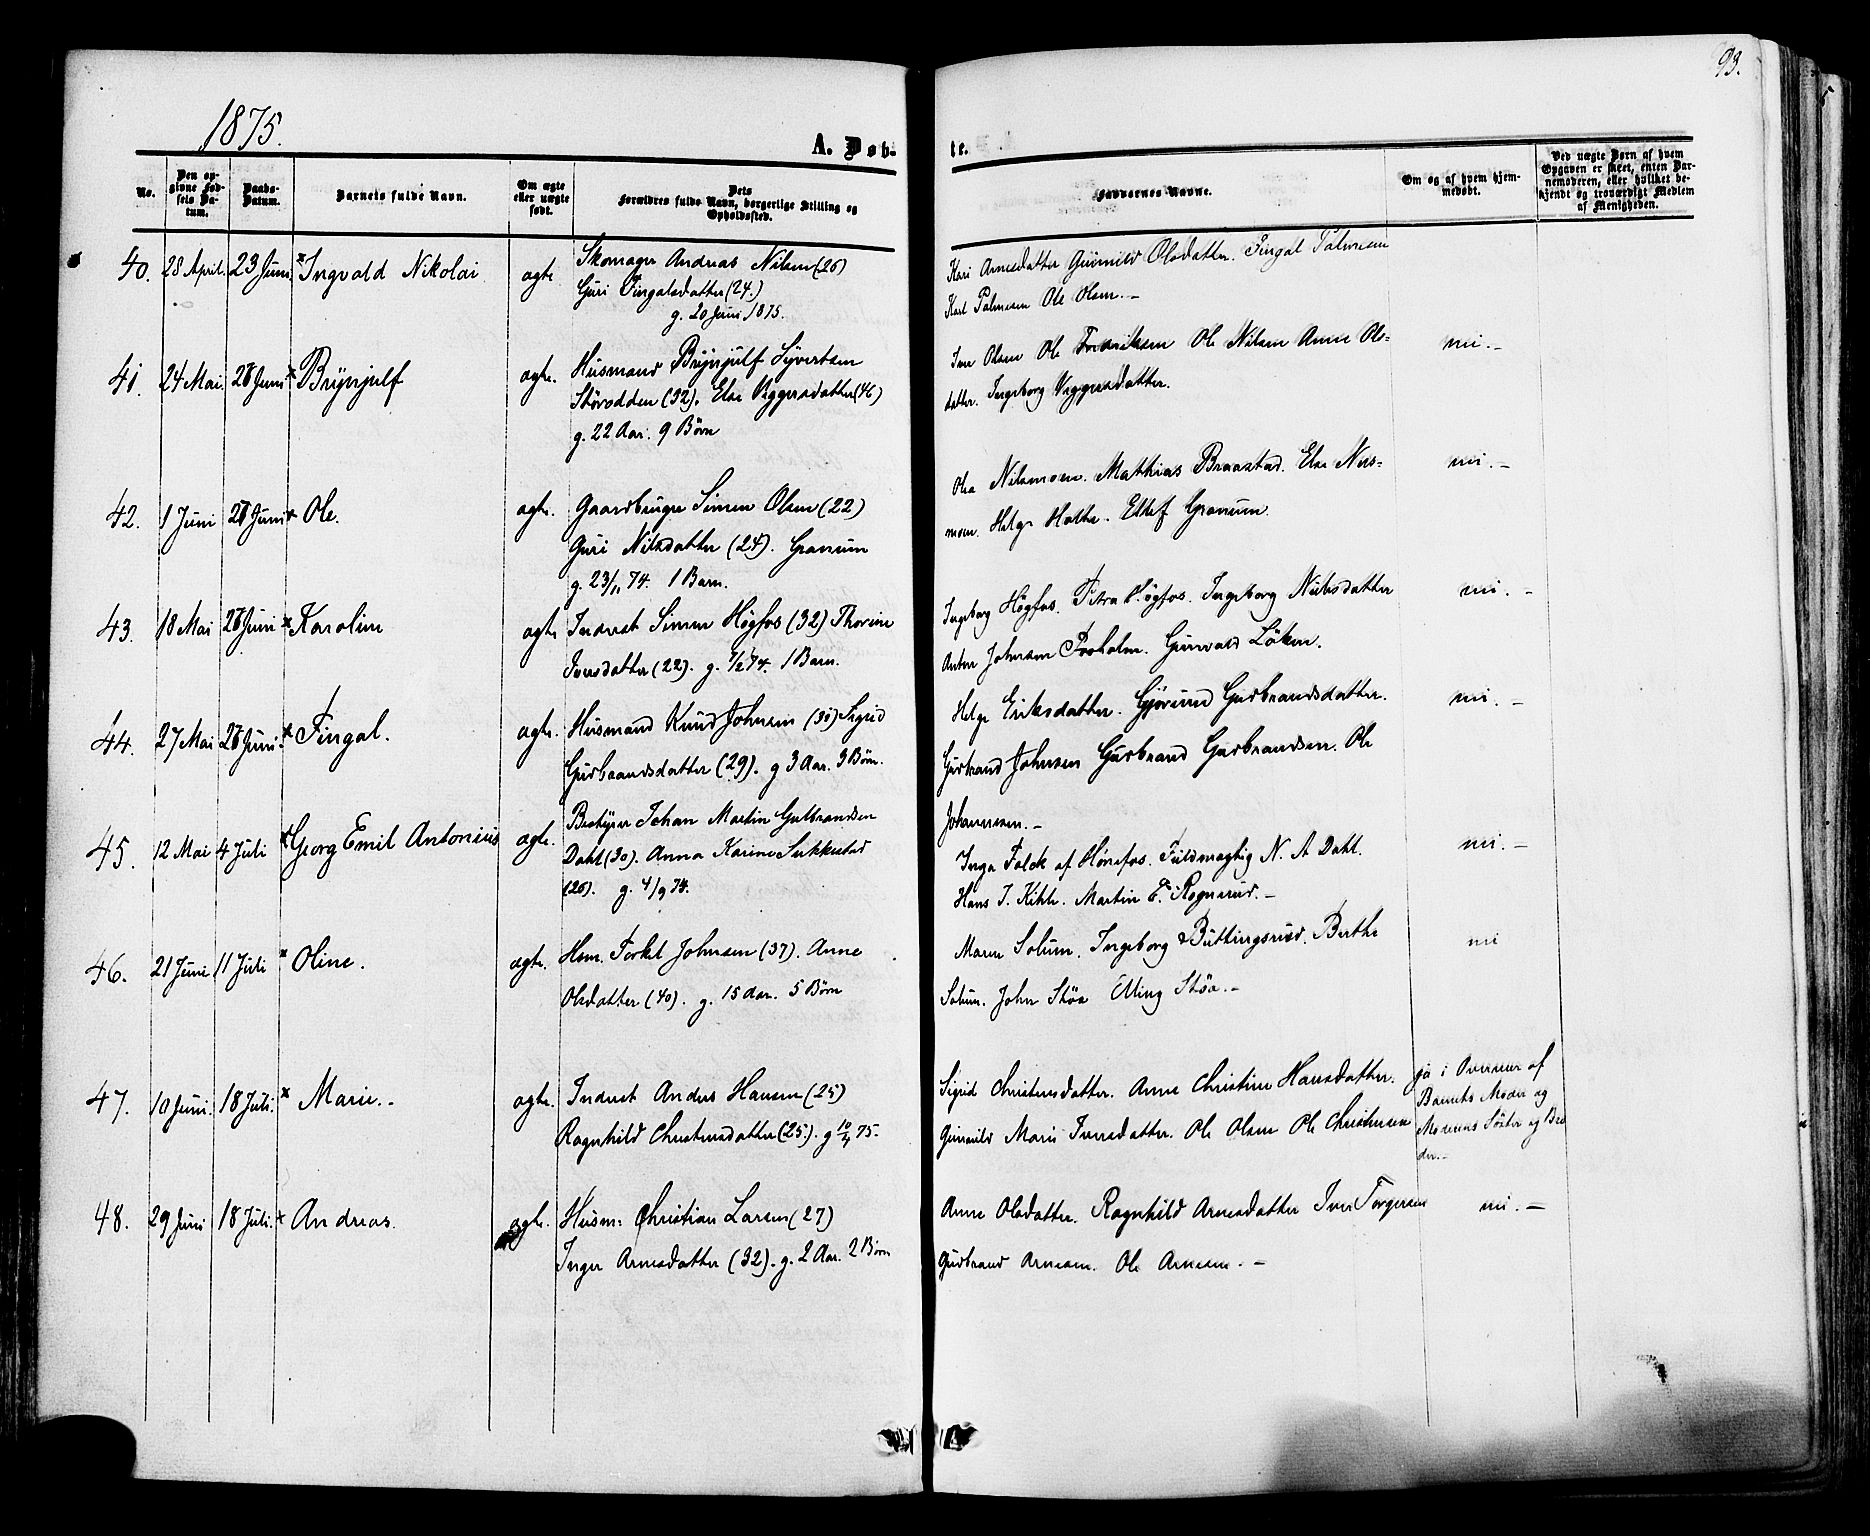 93.
1875.
A. Døb-
te.
No.
Den op-
givne Fød-
sels Da-
tum.
Daabs-
Datum.
Barnets fulde Navn.
Om ægte
eller uægte
født.
Dets
Forældres fulde Navn, borgerlige Stilling og
Opholdssted.
Faddernes Navne.
Om og af hvem hjem-
medøbt.
Ved uægte Børn af hvem
Opgaven er skeet, enten Bar-
nemoderen, eller hvilket be-
kjendt og troværdigt Medlem
af Menigheden.
40. 28 April. 23 Juni × Ingvald Nikolai ægte
Skomager Andreas Nilsen (26)
Guri Fingalsdatter (24.)
g. 20 Juni 1875.
Kari Arnesdatter Gunild Olsdatter. Fingal Palmesen
Karl Palmesen Ole Olsen. –
41. 24 Mai. 28 Juni × Brynjulf ægte.
Husmand Brynjulf Syvertsen
Størodden (32). Else Viggersdatter (46)
g. 22 Aar. 9 Børn
Iver Olsen Ole Fredriksen Ole Nilsen Anne Ols-
datter. Ingeborg Viggersdatter.
nei. –
42. 1 Juni 28 Juni × Ole. ægte.
Gaardbruger Simen Olsen (22)
Guri Nilsdatter (24). Granum
g. 23/11 74. 1 Barn.
Olea Nilsmoen. Mathias Braastad. Else Nils-
moen. Helge Holte. Ellef Granum.
nei. –
43. 18 Mai 28 Juni × Karoline ægte
Inderst Simen Høgfos (32) Thorine
Iversdatter (22). g. 7/2 74. 1 Barn.
Ingeborg Høgfos. Petra Høgfos. Ingeborg Nilsdatter
Anton Johnsen Fosholm. Gunvald Løken.
nei. –
44. 27 Mai 28 Juni. × Fingal. ægte.
Husmand Knud Johnsen (30) Sigrid
Gudbrandsdatter (29). g 3 Aar. 3 Børn.
Helge Eriksdatter. Gjørund Gudbrandsdatter.
Gudbrand Johnsen Gudbrand Gudbrandsen. Ole
Johannesen. –
nei. –
45. 12 Mai 4 Juli × Georg Emil Antonius ægte.
Bestyrer Johan Martin Gulbrandsen
Dahl (30). Anna Karine Sukkestad
(26). g. 4/9 74.
Inga Falck af Hønefos. Fuldmægtig N. A Dahl.
Hans J. Kihle. Martin E. Rognerud. –
nei. –
46. 21 Juni 11 Juli × Oline. ægte.
Hsm. Torkel Johnsen (37). Anne
Olsdatter (40). g. 15 Aar. 5 Børn
Maren Solum. Ingeborg Buttingsrud. Berthe
Solum. John Støa Elling Støa. –
nei
47. 10 Juni. 18 Juli. × Marie. – ægte.
Inderst Anders Hansen (25)
Ragnhild Christensdatter (25). g 10/4 75.
Sigrid Christensdatter. Anne Christine Hansdatter.
Gunild Marie Iversdatter. Ole Olsen Ole Christensen
ja i Overvær af
Barnets Moder og
Moderens Søster og Bro
der. –
48. 29 Juni 18 Juli. × Andreas. ægte.
Husm: Christian Larsen (27)
Inger Arnesdatter (32). g. 2 Aar. 2 Børn
Anne Olsdatter. Ragnhild Arnesdatter Iver Torgersen
Gudbrand Arnesen. Ole Arnesen. –
nei. –